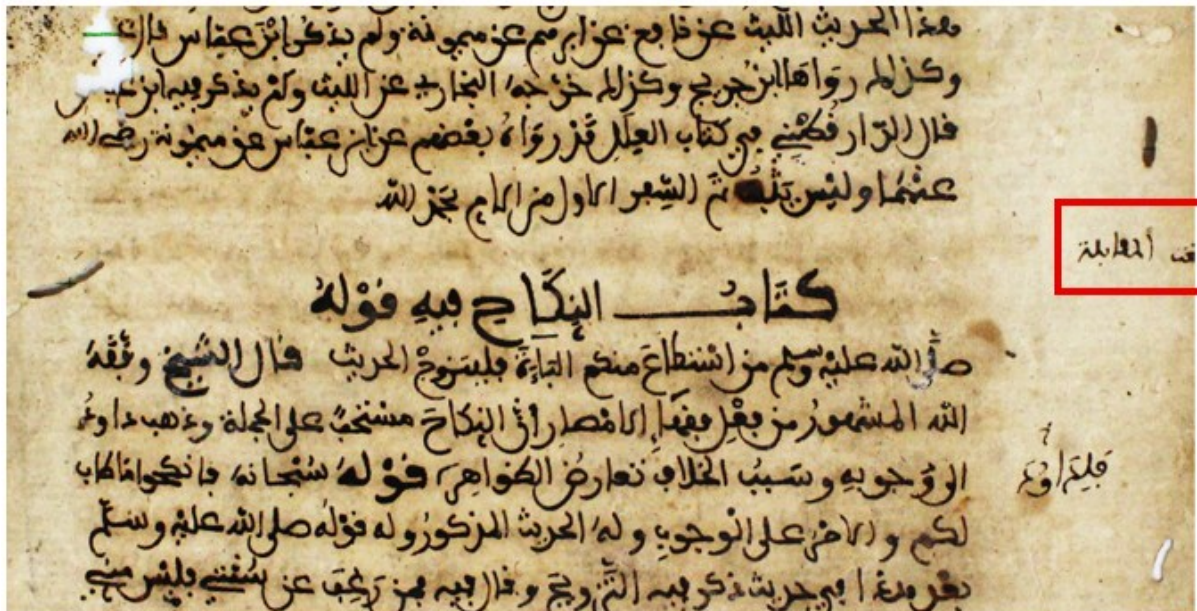 هذا الحديث الليث عن نافع عن ابرهيم عن ميمونة ولم يذكر ابن عباس قال
وكذلك رواها ابن جريج وكذلك خرّجه البخاري عن الليث ولم يذكر فيه ابن عباس
قال الدّارقطني في كتاب العلل قد رواه بعضهم عن ابن عباس عن ميمونة رضي الله
عنهما وليس يثبت تم السّفر الاول من الام بحمد الله
كتاب النكاح فيه قوله
صلى الله عليه وسلم من استطاع منكم الباءة فليتزوج الحديث قال الشيخ وفّقه
الله المشهور من فقهاء الامصار ان النكاح مستحب على الجملة وذهب داود
الى وجوبه وسبب الخلاف تعارض الظواهر قوله سبحانه فانكحوا ما طاب
لكم والامر على الوجوب وله الحديث المذكور وله قوله صلى الله عليه وسلم
بعد هذا في حديث ذكر فيه التزويج وقال فيه فمن رغب عن سنتي فليس مني
المقابلة